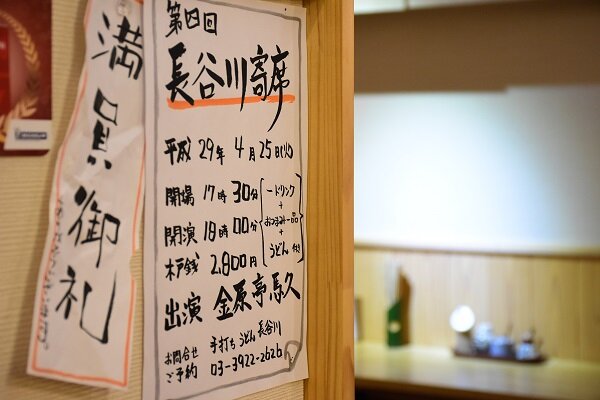 満員御礼
第四回
長谷川寄席
平成29年4月25日(火)
開場 17時30分
開演 18時00分
木戸銭 2,800円
一ドリンク
+
おつまみ一品
+
うどん 付き
出演 金原亭馬久
お問合せ
ご予約
手打ちうどん 長谷川
03-3922-2626